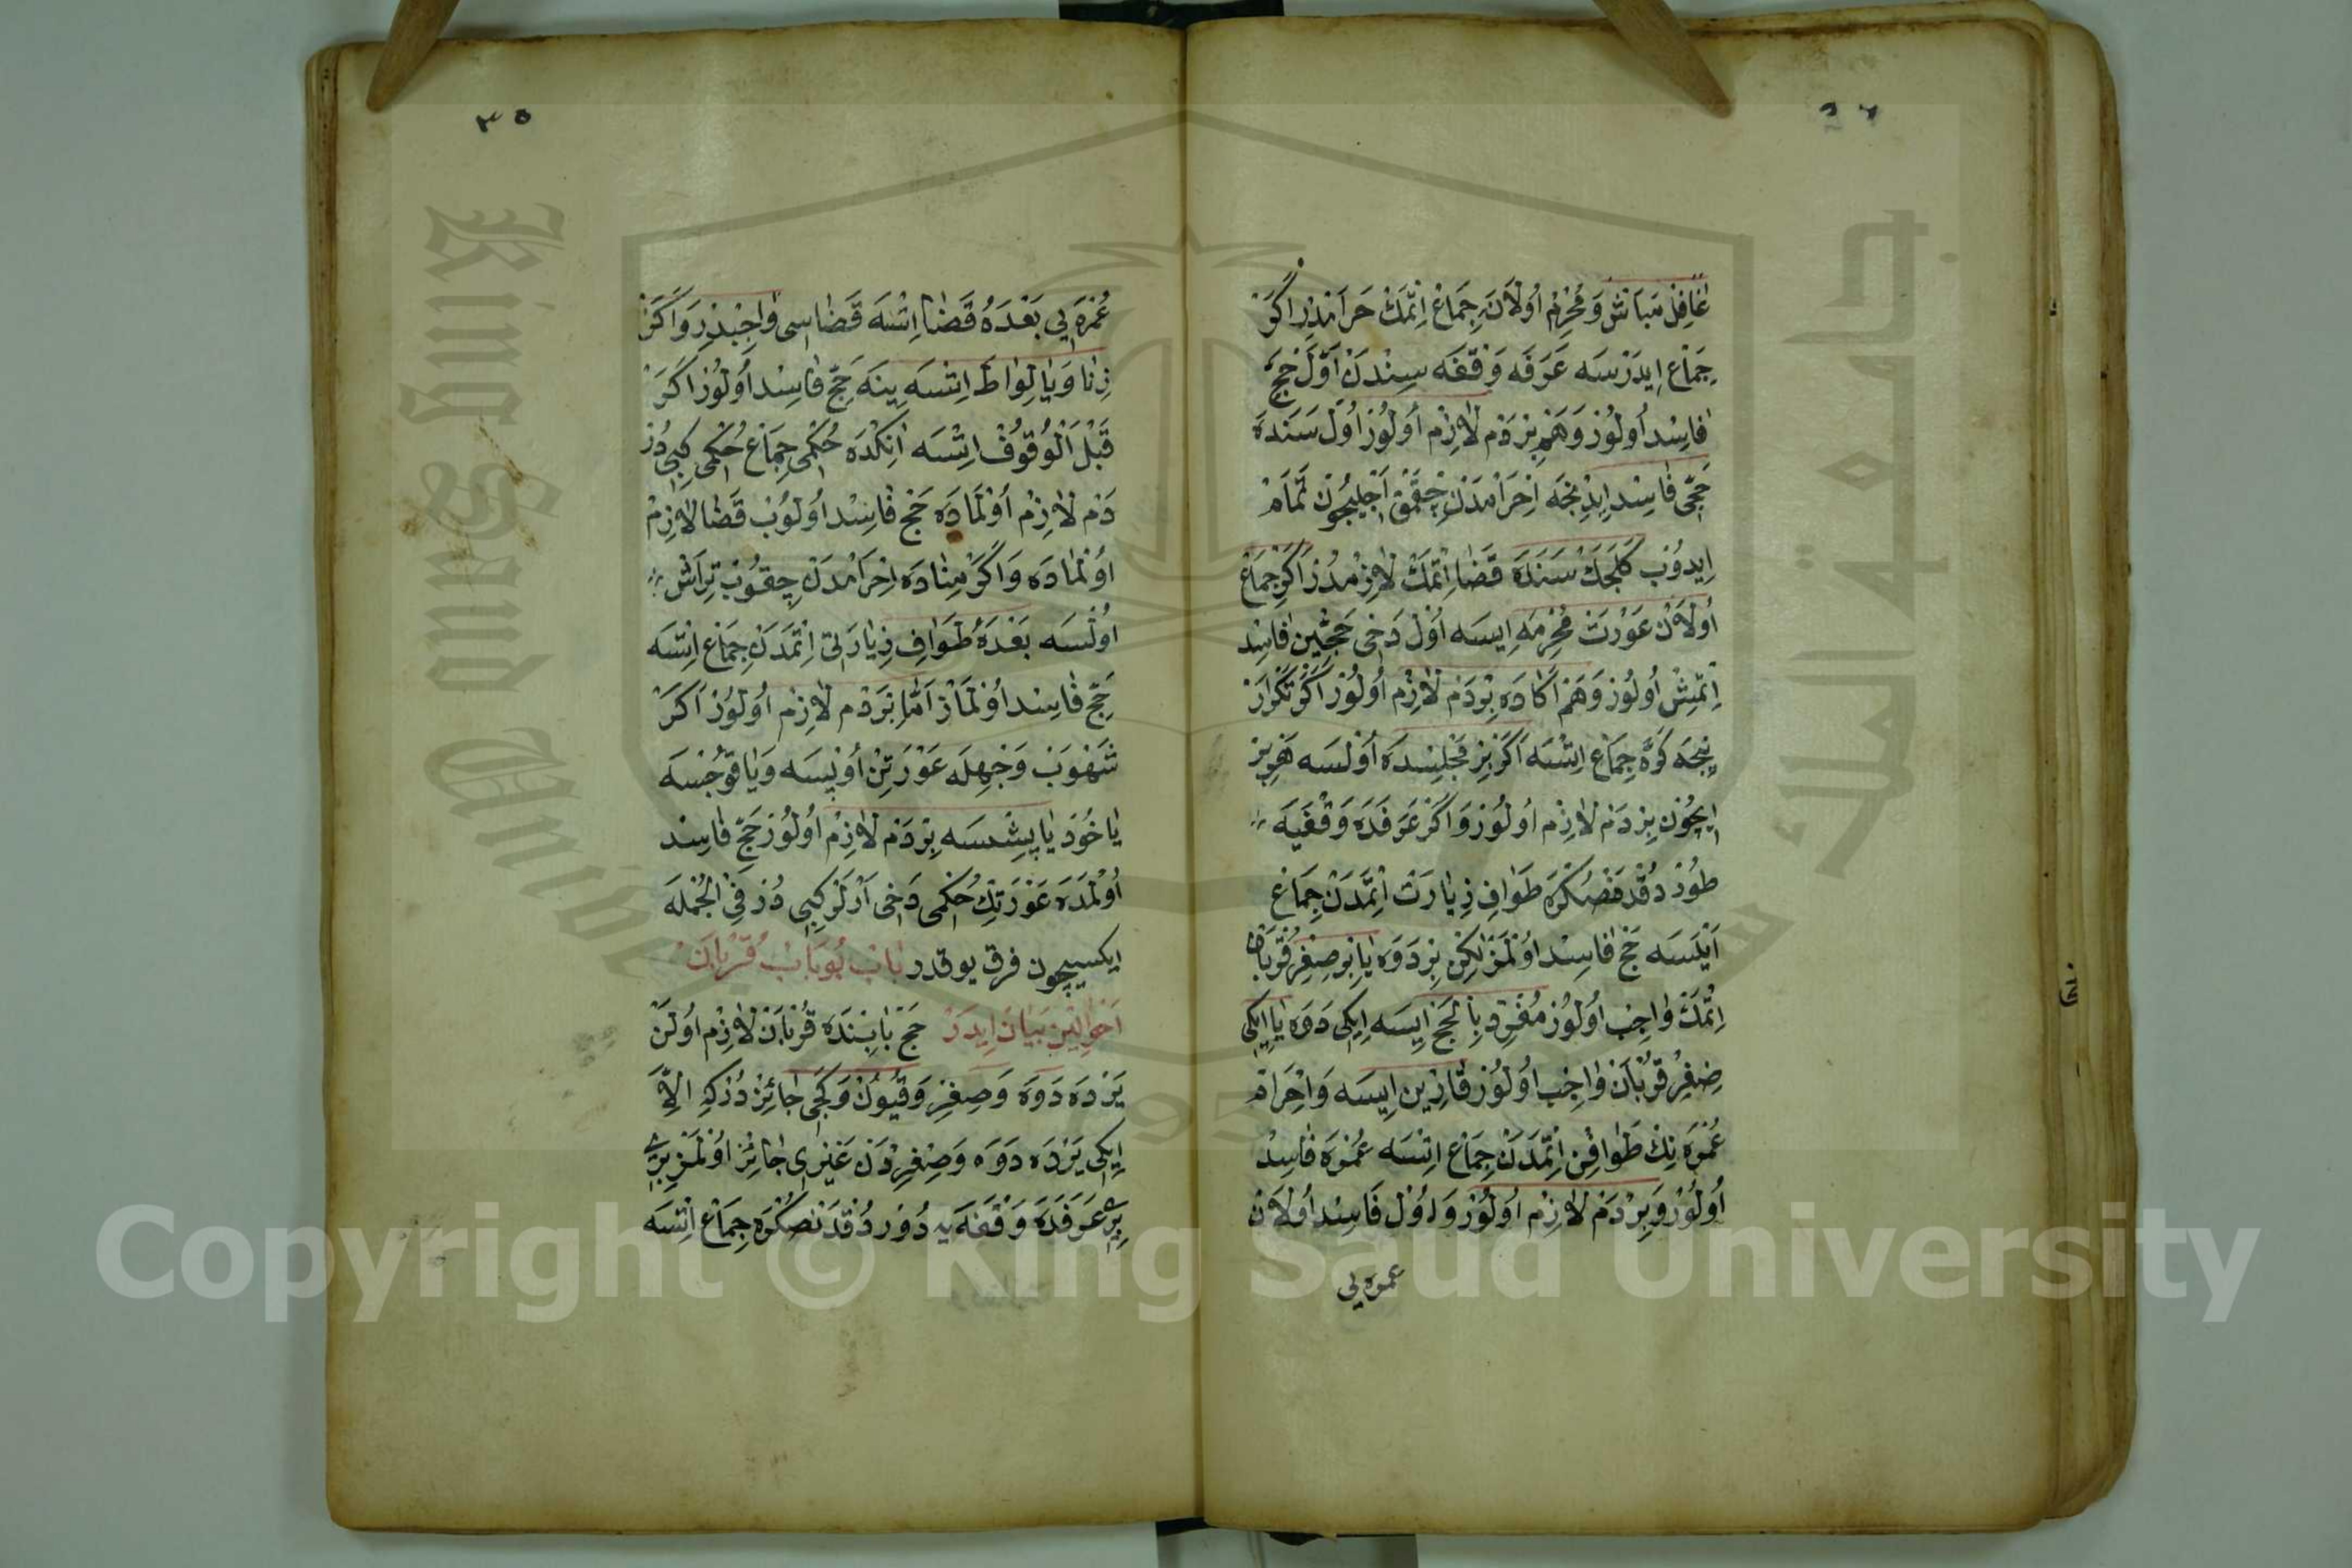 غَافِلْ مَبَاشْ وَمُحْرِمْ اُولَانَه جِمَاعْ اِتْمَكْ حَرَامْدِرْ اَكَرْ
جِمَاعْ اِيدَرْسَه عَرَفَه وَقْفَه سِنْدَنْ اَوَّلْ حَجّ
فَاسِدْ اُولُورْ وَهَمْ بِرْ دَمْ لَازِمْ اُولُورْ اُولْ سَنَدَه
حَجِّى فَاسِدْ اِيدِنْجَه اِحْرَامْدَنْ چِقْمَقْ اَجْلِيچُونْ تَمَامْ
اِيدُوبْ كَلَجَكْ سَنَدَه قَضَا اِتْمَكْ لَازِمْدُرْ اَكَرْ جِمَاعْ
اُولَانْ عَوْرَتْ مُحْرِمَه اِيسَه اُولْ دَخِى حَجِّينْ فَاسِدْ
اِتْمِشْ اُولُورْ وَهَمْ اَكَادَه بِرْ دَمْ لَازِمْ اُولُورْ اَكَرْ تَكْرَارْ
نِيجَه كَرَّه جِمَاعْ اِتْسَه اَكَرْ بِرْ مَجْلِسْدَه اُولْسَه هَرْ بِرْ
اِيچُونْ بِرْ دَمْ لَازِمْ اُولُورْ وَاَكَرْ عَرَفَدَه وَقْفَيَه
طُورْدُقْدَنْصُكْرَه طَوَافِ زِيَارَتْ اِتْمَدَنْ جِمَاعْ
اَيْلَسَه حَجّ فَاسِدْ اُولْمَزْ لٰكِنْ بِرْ دَوَه يَا بِرْ صِغِرْ قُرْبَانْ
اِتْمَكْ وَاجِبْ اُولُورْ مُفْرِدْ بِالْحَجّ اِيسَه اِيكِى دَوَه يَا اِيكِى
صِغِرْ قُرْبَانْ وَاجِبْ اُولُورْ قَارِنْ اِيسَه وَاِحْرَامْ
عُمْرَه نِكْ طَوَافِنْ اِتْمَدَنْ جِمَاعْ اِتْسَه عُمْرَه فَاسِدْ
اُولُورْ وَبِرْ دَمْ لَازِمْ اُولُورْ وَاُولْ فَاسِدْ اُولَانْ
عمره يى
٣٥
عُمْرَه يِى بَعْدَهُ قَضَا اِتْسَه قَضَاسِى وَاجِبْدِرْ وَاَكَرْ
زِنَا وَيَا لِوَاطَه اِتْسَه يِنَه حَجّ فَاسِدْ اُولُورْ اَكَرْ
قَبْلَ الْوُقُوفْ اِتْسَه اَنِكْدَه حُكْمِى جِمَاعْ حُكْمِى كِبِى دُرْ
دَمْ لَازِمْ اُولْمَادَه حَجّ فَاسِدْ اُولُوبْ قَضَا لَازِمْ
اُولْمَادَه وَاَكَرْ مِنَادَه اِحْرَامْدَنْ چِقُوبْ تِرَاشْ
اُولْسَه بَعْدَهُ طَوَافِ زِيَارَتِى اِتْمَدَنْ جِمَاعْ اِتْسَه
حَجّ فَاسِدْ اُولْمَازْ اَمَّا بِرْ دَمْ لَازِمْ اُولُورْ اَكَرْ
شَهْوَتْ وَجْهِلَه عَوْرَتِنْ اُوپْسَه وَيَا قُوجْسَه
يَا خُودْ يَاپِشْسَه بِرْ دَمْ لَازِمْ اُولُورْ حَجّ فَاسِدْ
اُولْمَدَه عَوْرَتِكْ حُكْمِى دَخِى اَرْلَرْ كِبِى دُرْ فِى الْجُمْلَه
ايكيسيچون فرق يوقدر بَابْ بُو بَابْ قُرْبَانْ
اَحْوَالِينْ بَيَانْ اِيدَرْ حَجّ بَابِنْدَه قُرْبَانْ لَازِمْ اُولَنْ
يَرْدَه دَوَه وَصِغِرْ وَقُيُونْ وَكَچِى جَائِزْدُرْكِه اِلَّا
اِيكِى يَرْدَه دَوَه وَصِغِرْدَنْ غَيْرِى جَائِزْ اُولْمَزْ بِرِى
بِرِى عَرَفَدَه وَقْفَه يَه دُورْدُقْدَنْصُكْرَه جِمَاعْ اِتْسَه
Copyright © King Saud University
King Saud University
جامعة الملك